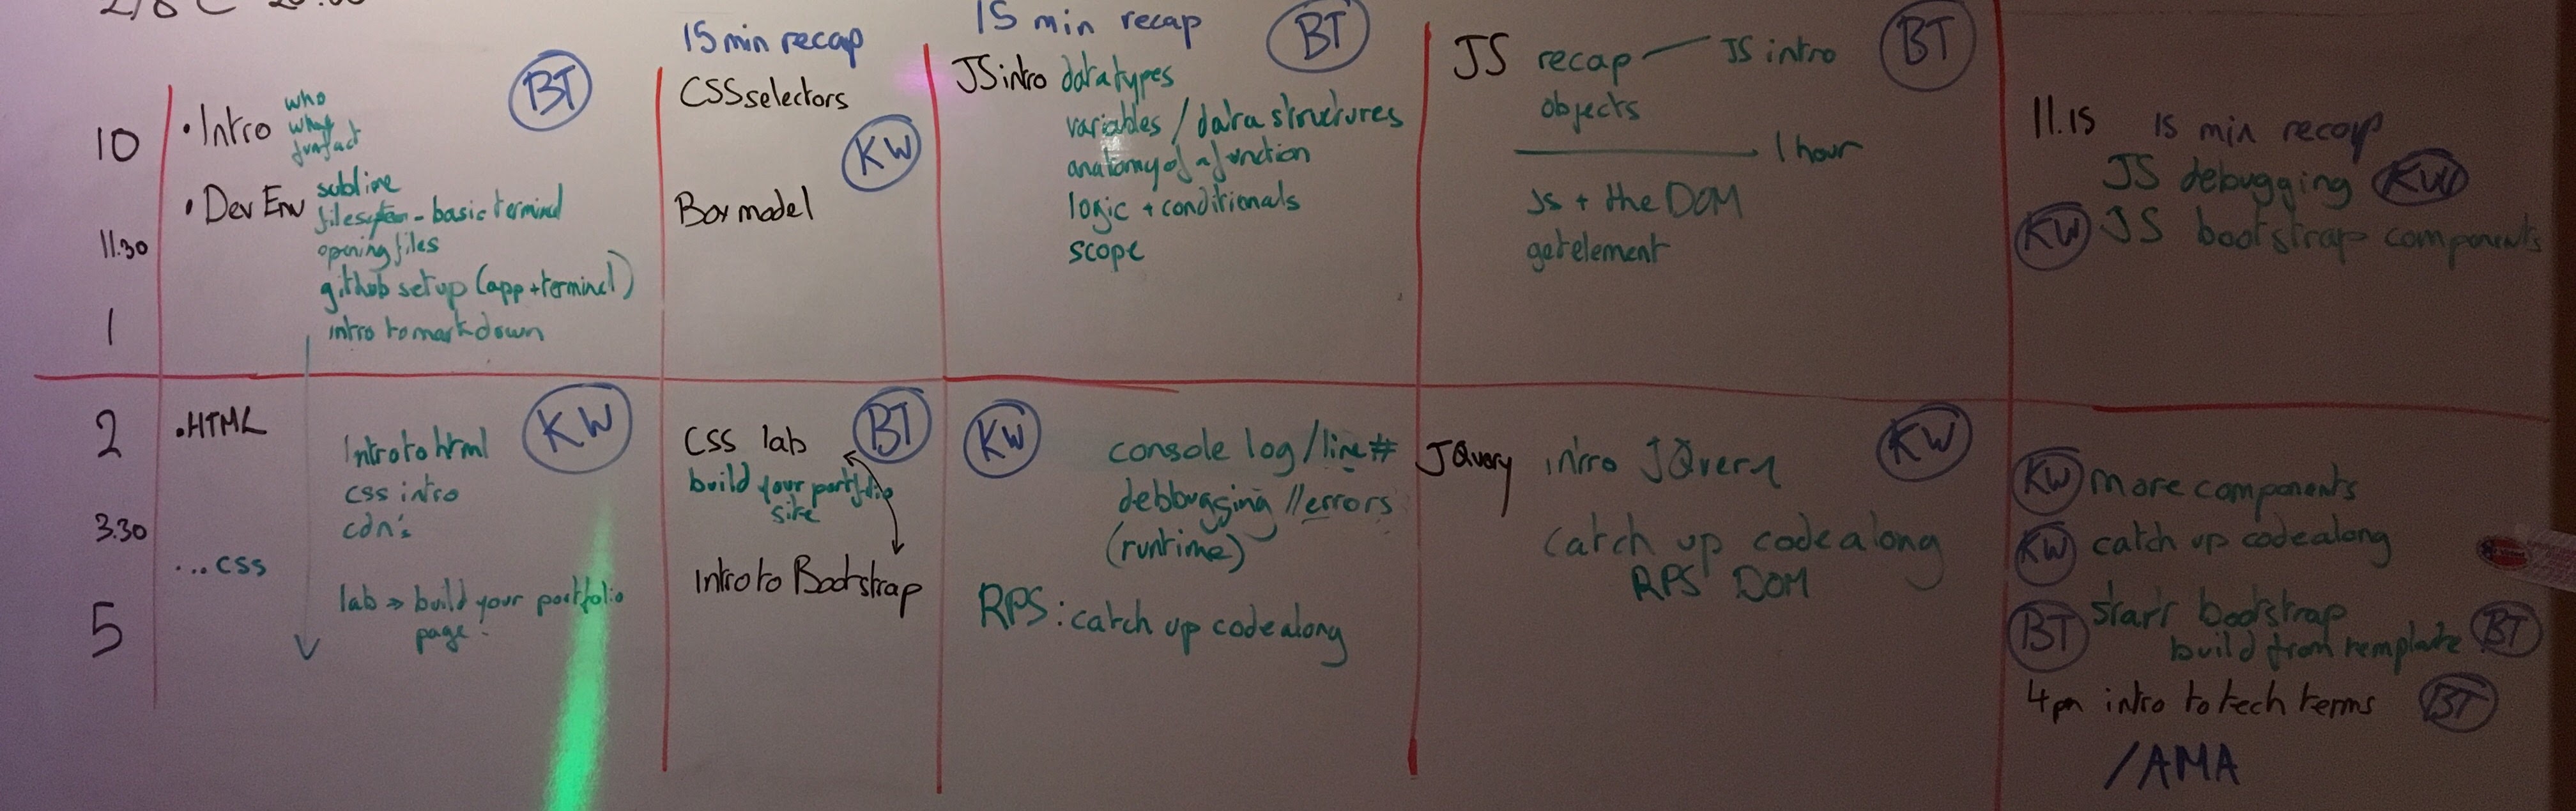 10
11.30
1
•Intro
who
what
funfact
BT
•Dev Env
sublime
filesystem - basic terminal
opening files
github setup (app + terminal)
intro to markdown
15 min recap
CSS selectors
KW
Box model
15 min recap
BT
JS intro datatypes
variables / data structures
anatomy of a function
logic + conditionals
scope
JS recap — JS intro
BT
objects
1 hour
JS + the DOM
getelement
11.15 15 min recap
JS debugging KW
KW JS bootstrap components
2
3.30
5
•HTML
KW
Intro to html
css intro
cdn's
...css
lab » build your portfolio
page
CSS lab
BT
build your portfolio
site
Intro to Bootstrap
KW
console log / line #
debbugging // errors
(runtime)
RPS: catch up codealong
JQuery intro JQuery
KW
catch up codealong
RPS DOM
KW more components
KW catch up codealong
BT start bootstrap
build from template BT
4pm intro to tech terms BT
/AMA